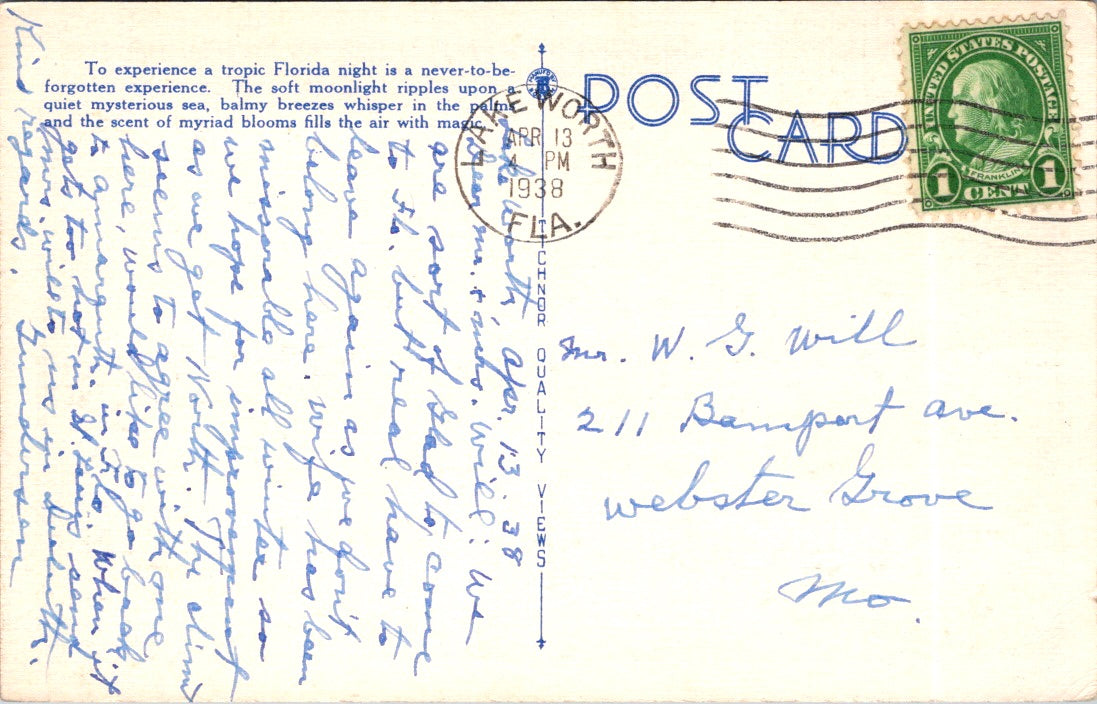 To experience a tropic Florida night is a never-to-be-
forgotten experience. The soft moonlight ripples upon a
quiet mysterious sea, balmy breezes whisper in the palms
and the scent of myriad blooms fills the air with magic.
POST
CARD
LAKE WORTH
APR 13
4 PM
1938
FLA.
UNITED STATES POSTAGE
FRANKLIN
1 CENT 1
TICHNOR QUALITY VIEWS
Lake Worth Apr. 13. 38
Dear Mr. & Mrs. Will: We
are sort of glad to come
to Fla. but real have to
leave again as we don't
belong here. Wife has been
miserable all winter so
we hope for improvement
as we get North. The clim
seems to agree with one
here, would like to go back
to in Fla When it
gets too hot in St. send
will to us in Duluth.
Kind regards. Gunderson
Mr. W. G. Will
211 Bamport Ave.
Webster Grove
Mo.